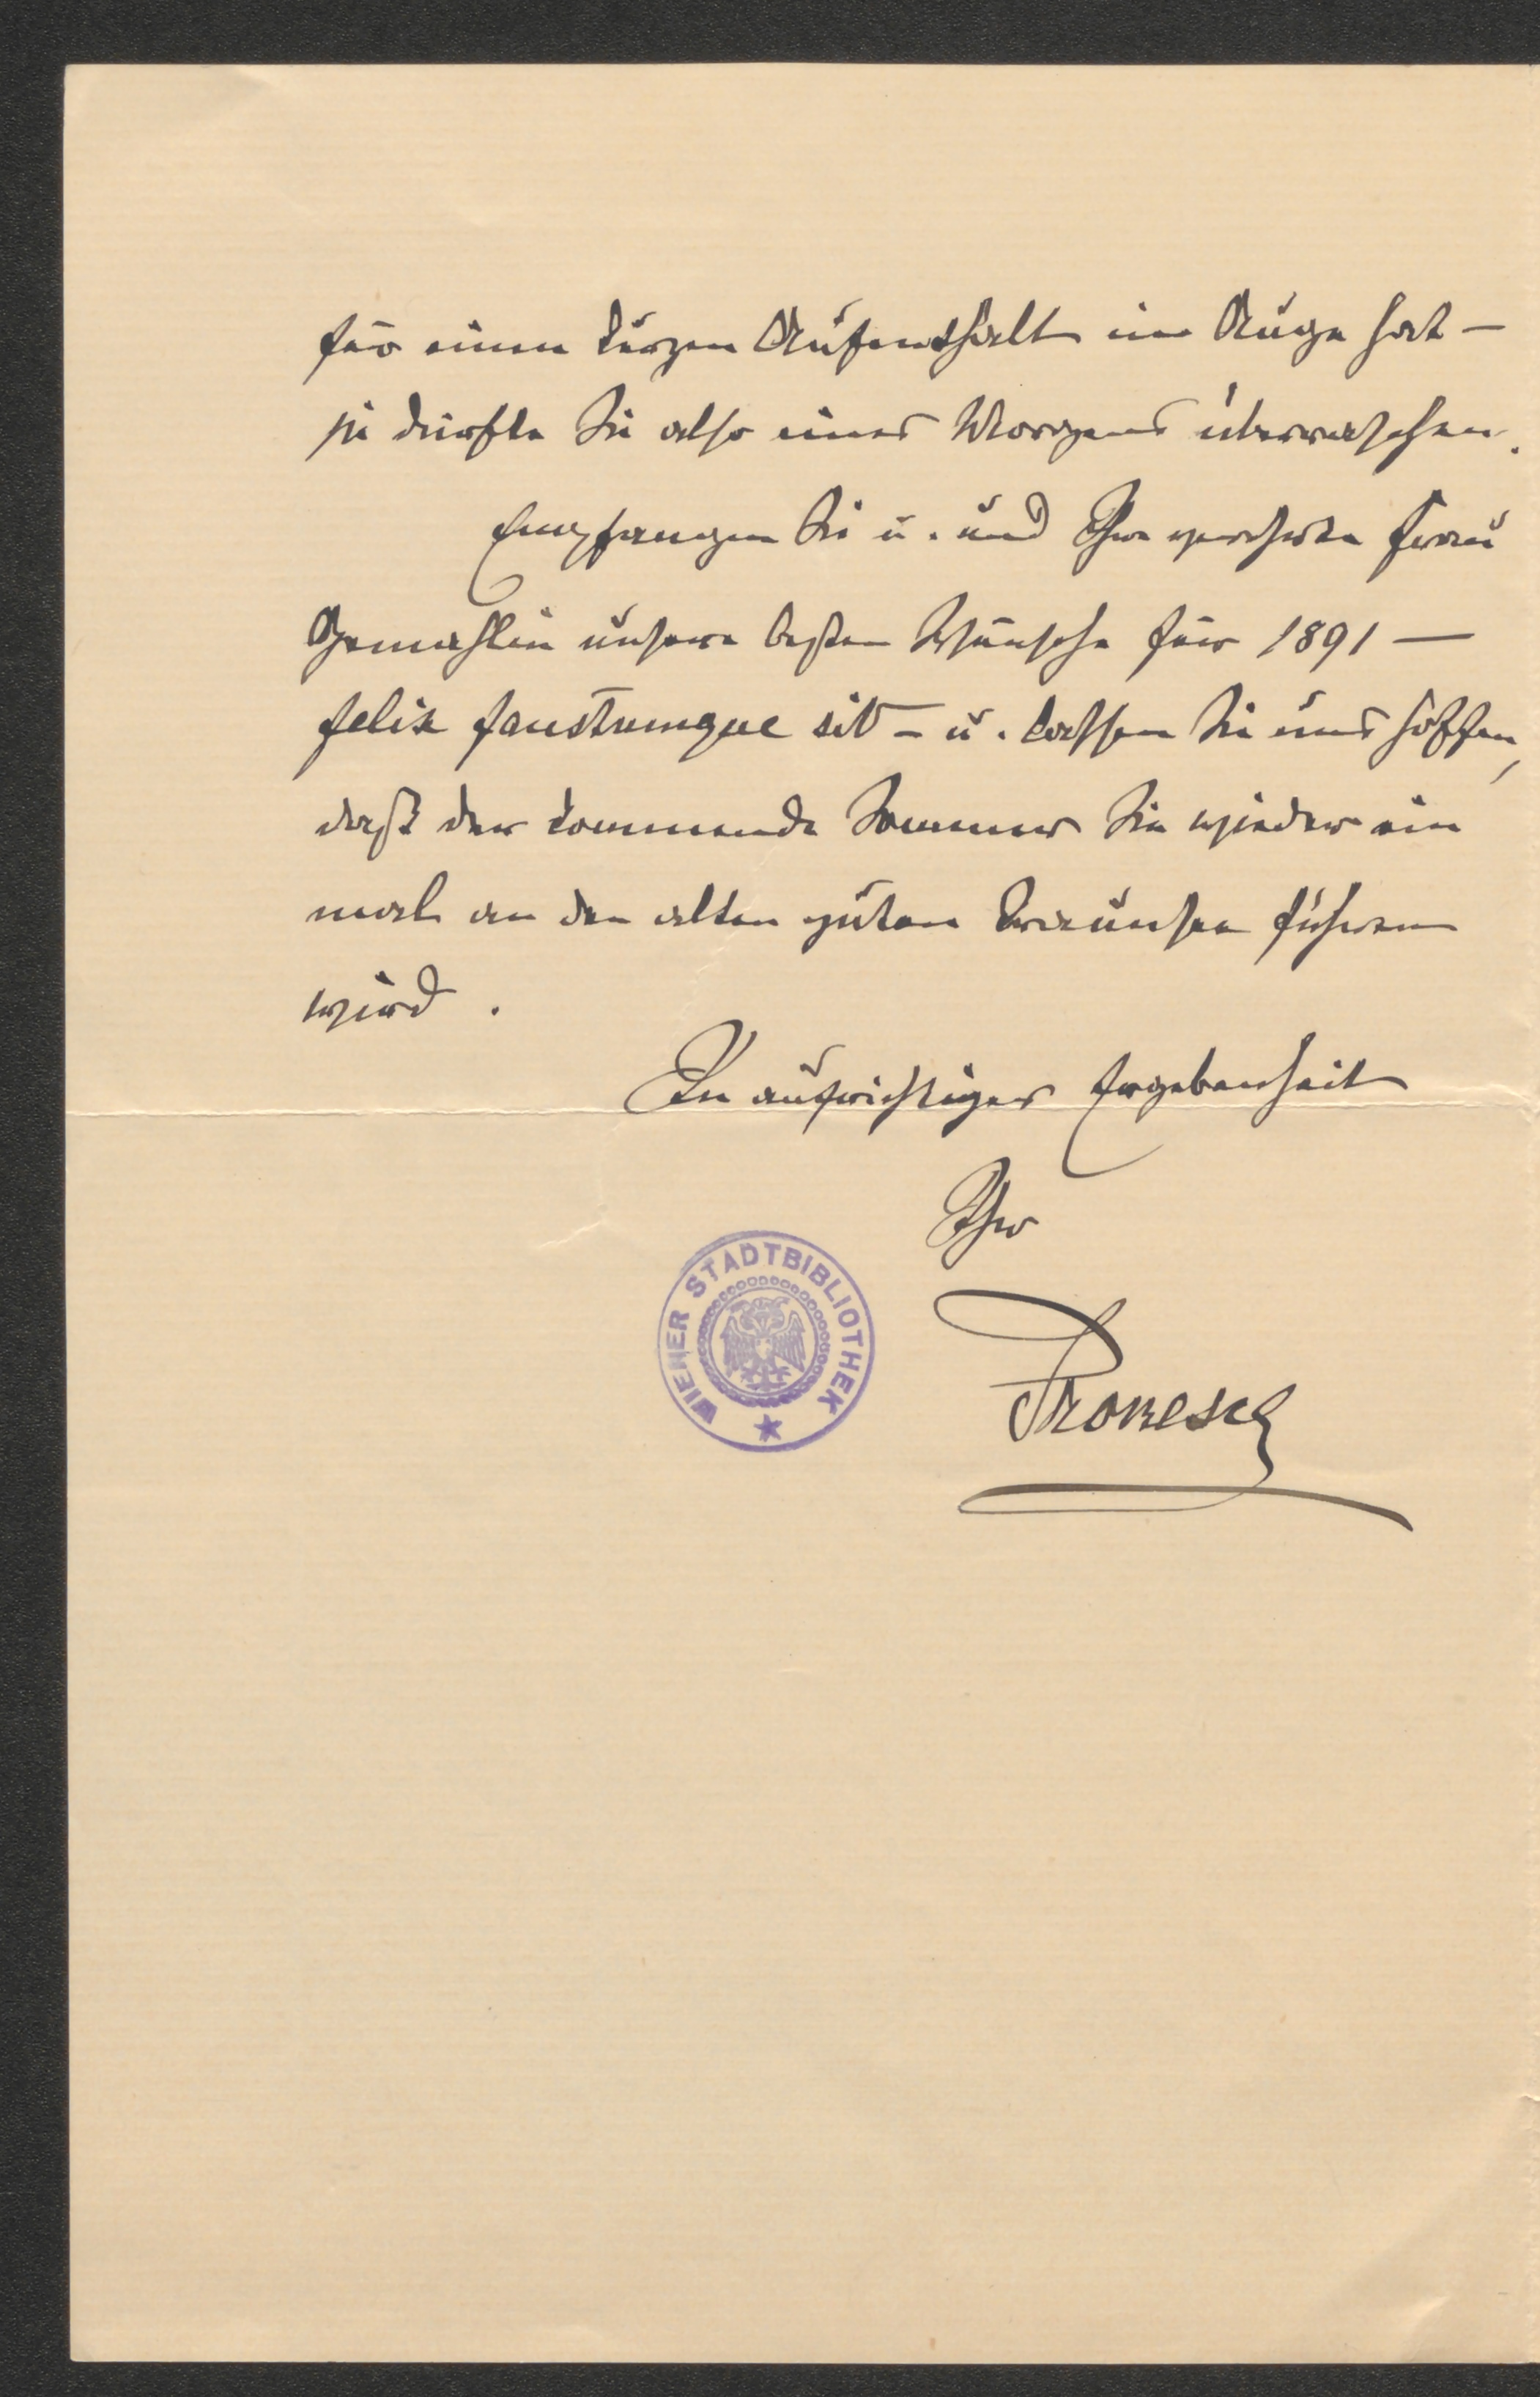 für einen kurzen Aufenthalt im Auge hat –
sie dürfte Sie also eines Morgens überraschen.
Empfangen Sie u. und Ihre verehrte Frau
Gemahlin unsere besten Wünsche für 1891 —
felix faustumque sit – u. lassen Sie uns hoffen,
daß der kommende Sommer Sie wieder ein
mal an den alten guten Traunsee führen
wird.
In aufrichtiger Ergebenheit
Ihr
WIENER STADTBIBLIOTHEK